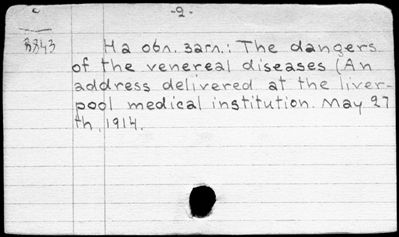 -2-
На обл. загл.: The dangers
of the venereal diseases (An
address delivered at the liver-
pool medical institution. May 27
th, 1914.